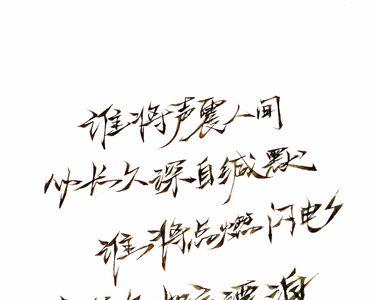 谁将声震人间
必长久深自缄默
谁将点燃闪电